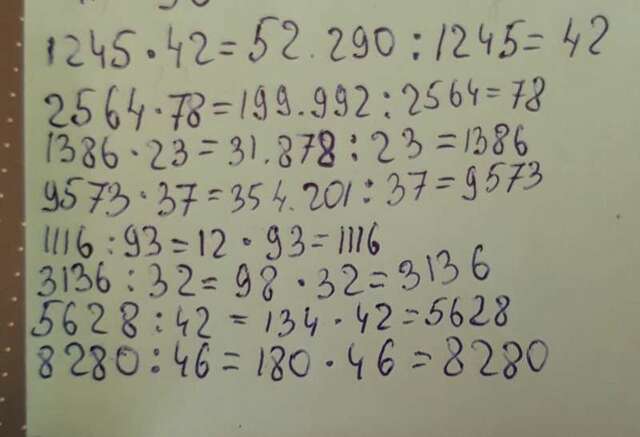 1245 · 42 = 52.290 : 1245 = 42
2564 · 78 = 199.992 : 2564 = 78
1386 · 23 = 31.878 : 23 = 1386
9573 · 37 = 354.201 : 37 = 9573
1116 : 93 = 12 · 93 = 1116
3136 : 32 = 98 · 32 = 3136
5628 : 42 = 134 · 42 = 5628
8280 : 46 = 180 · 46 = 8280